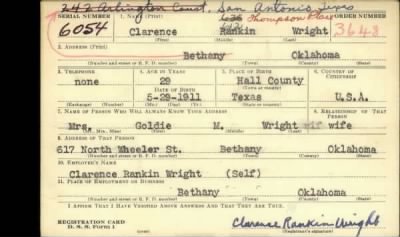 242 Arlington Court, San Antonio Texas
SERIAL NUMBER 1. NAME (Print) Thompson Place ORDER NUMBER
6054 Clarence Rankin Wright 3648
2. ADDRESS (Print)
Bethany Oklahoma
3. TELEPHONE 4. AGE IN YEARS 5. PLACE OF BIRTH 6. COUNTRY OF CITIZENSHIP
none 29 Hall County
DATE OF BIRTH (Town or county)
5-29-1911 Texas U.S.A.
(Exchange) (Number) (Mo.) (Day) (Yr.) (State or country)
7. NAME OF PERSON WHO WILL ALWAYS KNOW YOUR ADDRESS 8. RELATIONSHIP OF THAT PERSON
Mrs. Goldie M. Wright wife
8. ADDRESS OF THAT PERSON
617 North Wheeler St. Bethany Oklahoma
(Number and street or R. F. D. number) (Town) (County) (State)
10. EMPLOYER'S NAME
Clarence Rankin Wright (Self)
11. PLACE OF EMPLOYMENT OR BUSINESS
Bethany Oklahoma
(Number and street or R. F. D. number) (Town) (County) (State)
I AFFIRM THAT I HAVE VERIFIED ABOVE ANSWERS AND THAT THEY ARE TRUE.
REGISTRATION CARD
D. S. S. Form 1 Clarence Rankin Wright